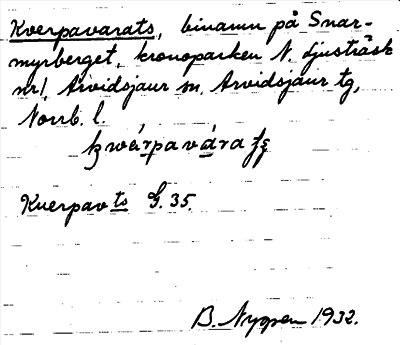 Kverpavarats, binamn på Snar-
myrberget, kronoparken N. Ljusträsk
nr 1, Arvidsjaur sn, Arvidsjaur tg,
Norrb. l.
Kverpavts G. 35.
B. Nyppen 1932.